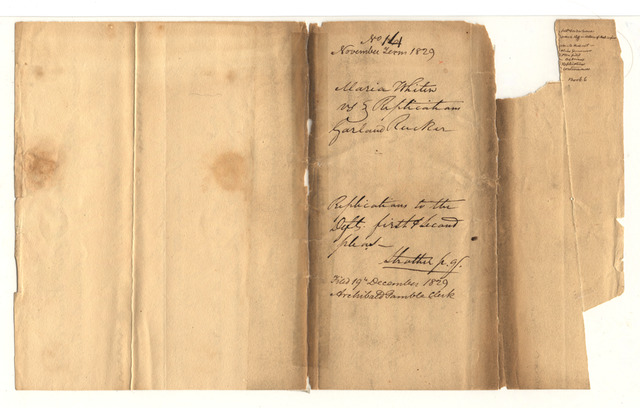 No 14
November Term 1829
Maria Whiten
vs } Replications
Garland Rucker
Replications to the
Defts. first & second
pleas—
Strother p. q.
Filed 19th December 1829
Archibald Gamble Clerk